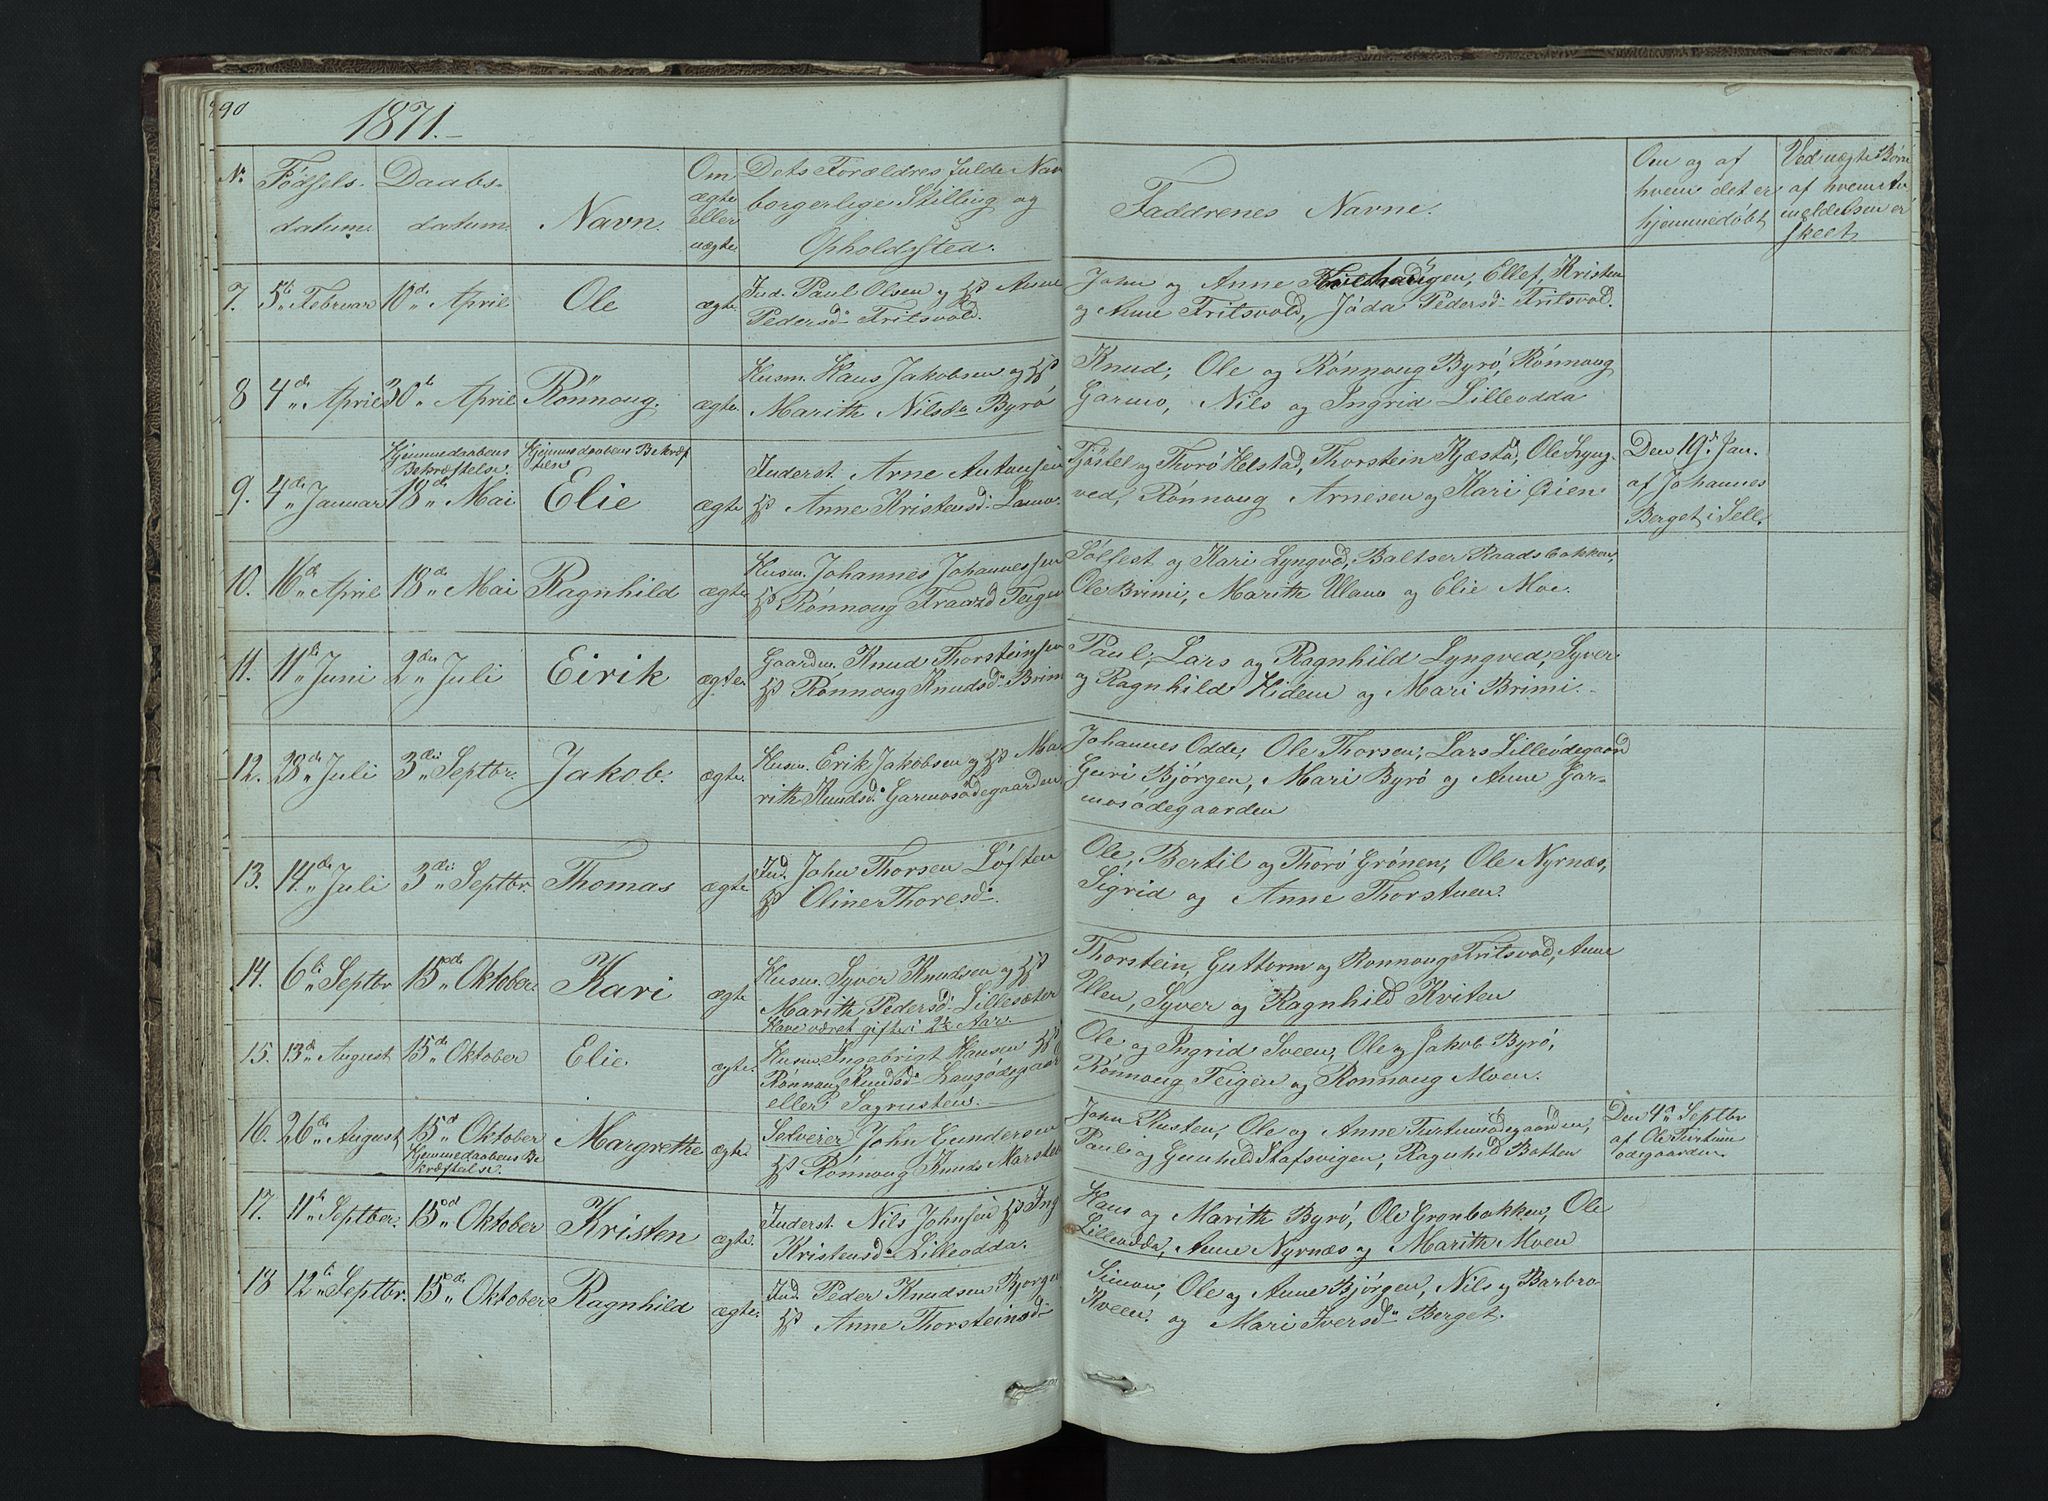 90
1871.
Nr
Födsels-
datum.
Daabs-
datum.
Navn.
Om
ægte
eller
uægte
Dets Forældres fulde Nav
borgerlige Stilling og
Opholdssted.
Faddrenes Navne.
Om og af
hvem det er
hjemmedöbt
Ved uægte Börn
af hvem An
meldelsen er
skeet.
7. 5te Februar 10de April Ole ægte. Ind. Paul Olsen og Hst Anne
Pedersd. Fritsvold.
John og Anne gen, Ellef, Kristen
og Anne Fritsvold, Jöda Pedersd. Fritsvold.
8 4de April 30te April Rönnoug. ægte. Husm. Hans Jakobsen og Hst
Marith Nilsd. Byrö
Knud, Ole og Rönnoug Byrö, Rönnoug
Garmo, Nils og Ingrid Lilleodda
Hjemmedaabens
Bekræftelse.
Hjemmedaabens Bekræf
telse
9. 4de Januar 18de Mai Elie ægte Inderst. Arne Antonsen
Hst Anne Kristensd.
Tjöstel og Thorö Helstad, Thorstein Kjæstad, Ole Lyng-
ved, Rönnoug Arnesen og Kari Öien.
Den 19de Jan.
af Johannes
Berget i Sell.
10. 16de April 18de Mai Ragnhild ægte Husm. Johannes Johannessen
Hst Rönnoug Traasd Teigen
Sölfest og Kari Lyngved, Baltser Raadsbakken,
Ole Brimi, Marith Ulamo og Elie Moe.
11. 11te Juni 2den Juli Eirik ægte. Gaardm. Knud Thorsteinsen
Hst Rönnoug Knudsd. Brimi
Paul, Lars og Ragnhild Lyngved, Syver
og Ragnhild Hidem og Mari Brimi.
12. 28de Juli 3die Septbr. Jakob. ægte. Husm. Erik Jakobsen og Hst Ma
rith Knudsd. Garmosödegaarden.
Johannes Odde, Ole Thorsen, Lars Lilleödegaard
Guri Bjørgen, Mari Byrö og Anne Gar-
mosödegaarden
13. 14de Juli 3die Septbr. Thomas ægte Ind. John Thorsen Löften
Hst Oline Thoresd.
Ole, Bertil og Thorö Grönen, Ole Nyrnæs,
Sigrid og Anne Thorstuen.
14. 6te Septbr 15de Oktober. Kari ægte Husm. Syver Knudsen og Hst
Marith Pedersd. Lillesæter
Have været gifte i 2½ Aar.
Thorstein, Guttorm og Rönnoug Fritsvold, Anne
Ullen, Syver og Ragnhild Kviten
15. 13de August 15de Oktober Elie. ægte. Husm. Ingebrigt Hansen Hst
Rönnoug Knudsd.
eller Sagrusten.
Ole og Ingrid Sveen, Ole og Jakob Byrö,
Rönnoug Teigen og Rönnoug Moen.
16. 26de August, 15de Oktober Margrethe ægte. Selveier John Gundersen
Hjemmedaabens Be
kræftelse.
Hst Rönnoug Knuds
John Rusten, Ole og Anne Turtumsödegaarden,
Paul og Gunhild Stafsvigen, Ragnhild Botten
Den 4de Septbr
af Ole Turtum
ödegaarden
17. 11te Septber. 15de Oktober Kristen ægte. Inderst. Nils Johnsen Hst Ing
Kristensd. Lilleodda.
Hans og Marith Byrö, Ole Grönbakken, Ole
Lilleodda, Anne Nyrnæs og Marith Moen
18 12te Septbr. 15de Oktober Ragnhild ægte. Ind. Peder Knudsen Bjorgen
Hst Anne Thorsteinsd.
Simon, Ole og Anne Bjørgen, Nils og Barbro
Kveen. og Mari Iversd. Berget.